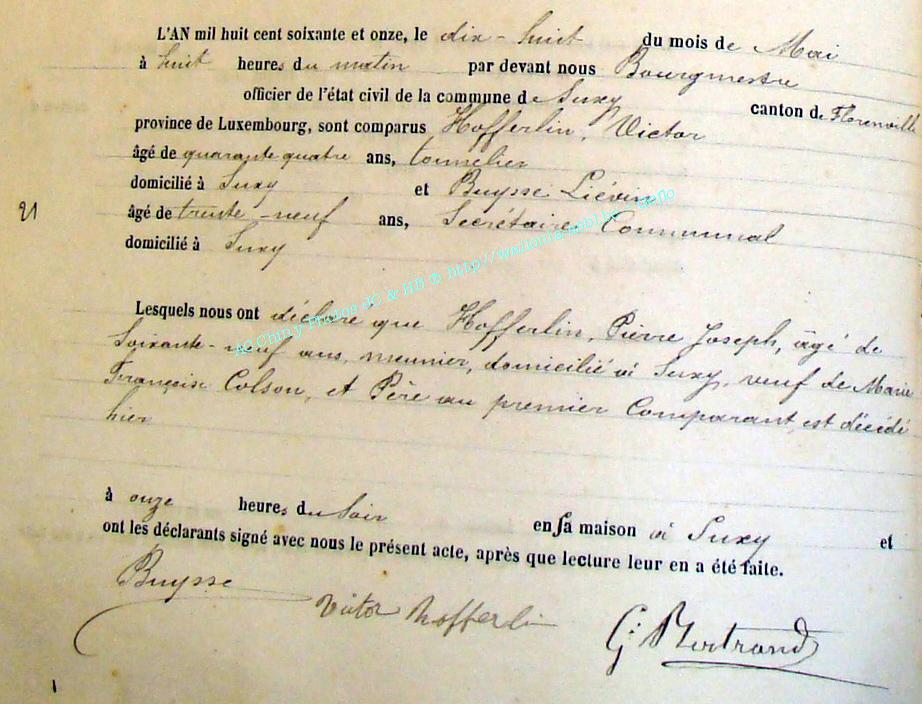 L'AN mil huit cent soixante et onze, le dix-huit du mois de Mai
à huit heures du matin par devant nous Bourgmestre
officier de l'état civil de la commune de Suxy canton de Florenville
province de Luxembourg, sont comparus Hofferlin, Victor
âgé de quarante quatre ans, tonnelier
domicilié à Suxy et Buysse Liévin
21 âgé de trente-neuf ans, Secrétaire Communal
domicilié à Suxy
Lesquels nous ont déclaré que Hofferlin, Pierre Joseph, âgé de
Soixante-neuf ans, meunier, domicilié à Suxy, veuf de Marie
Françoise Colson, et Père au premier Comparant, est décédé
hier
à onze heures du Soir en sa maison à Suxy et
ont les déclarants signé avec nous le présent acte, après que lecture leur en a été faite.
Buysse
Victor Hofferlin
G. Bertrand
Photos JC & HB @ http://wallonia